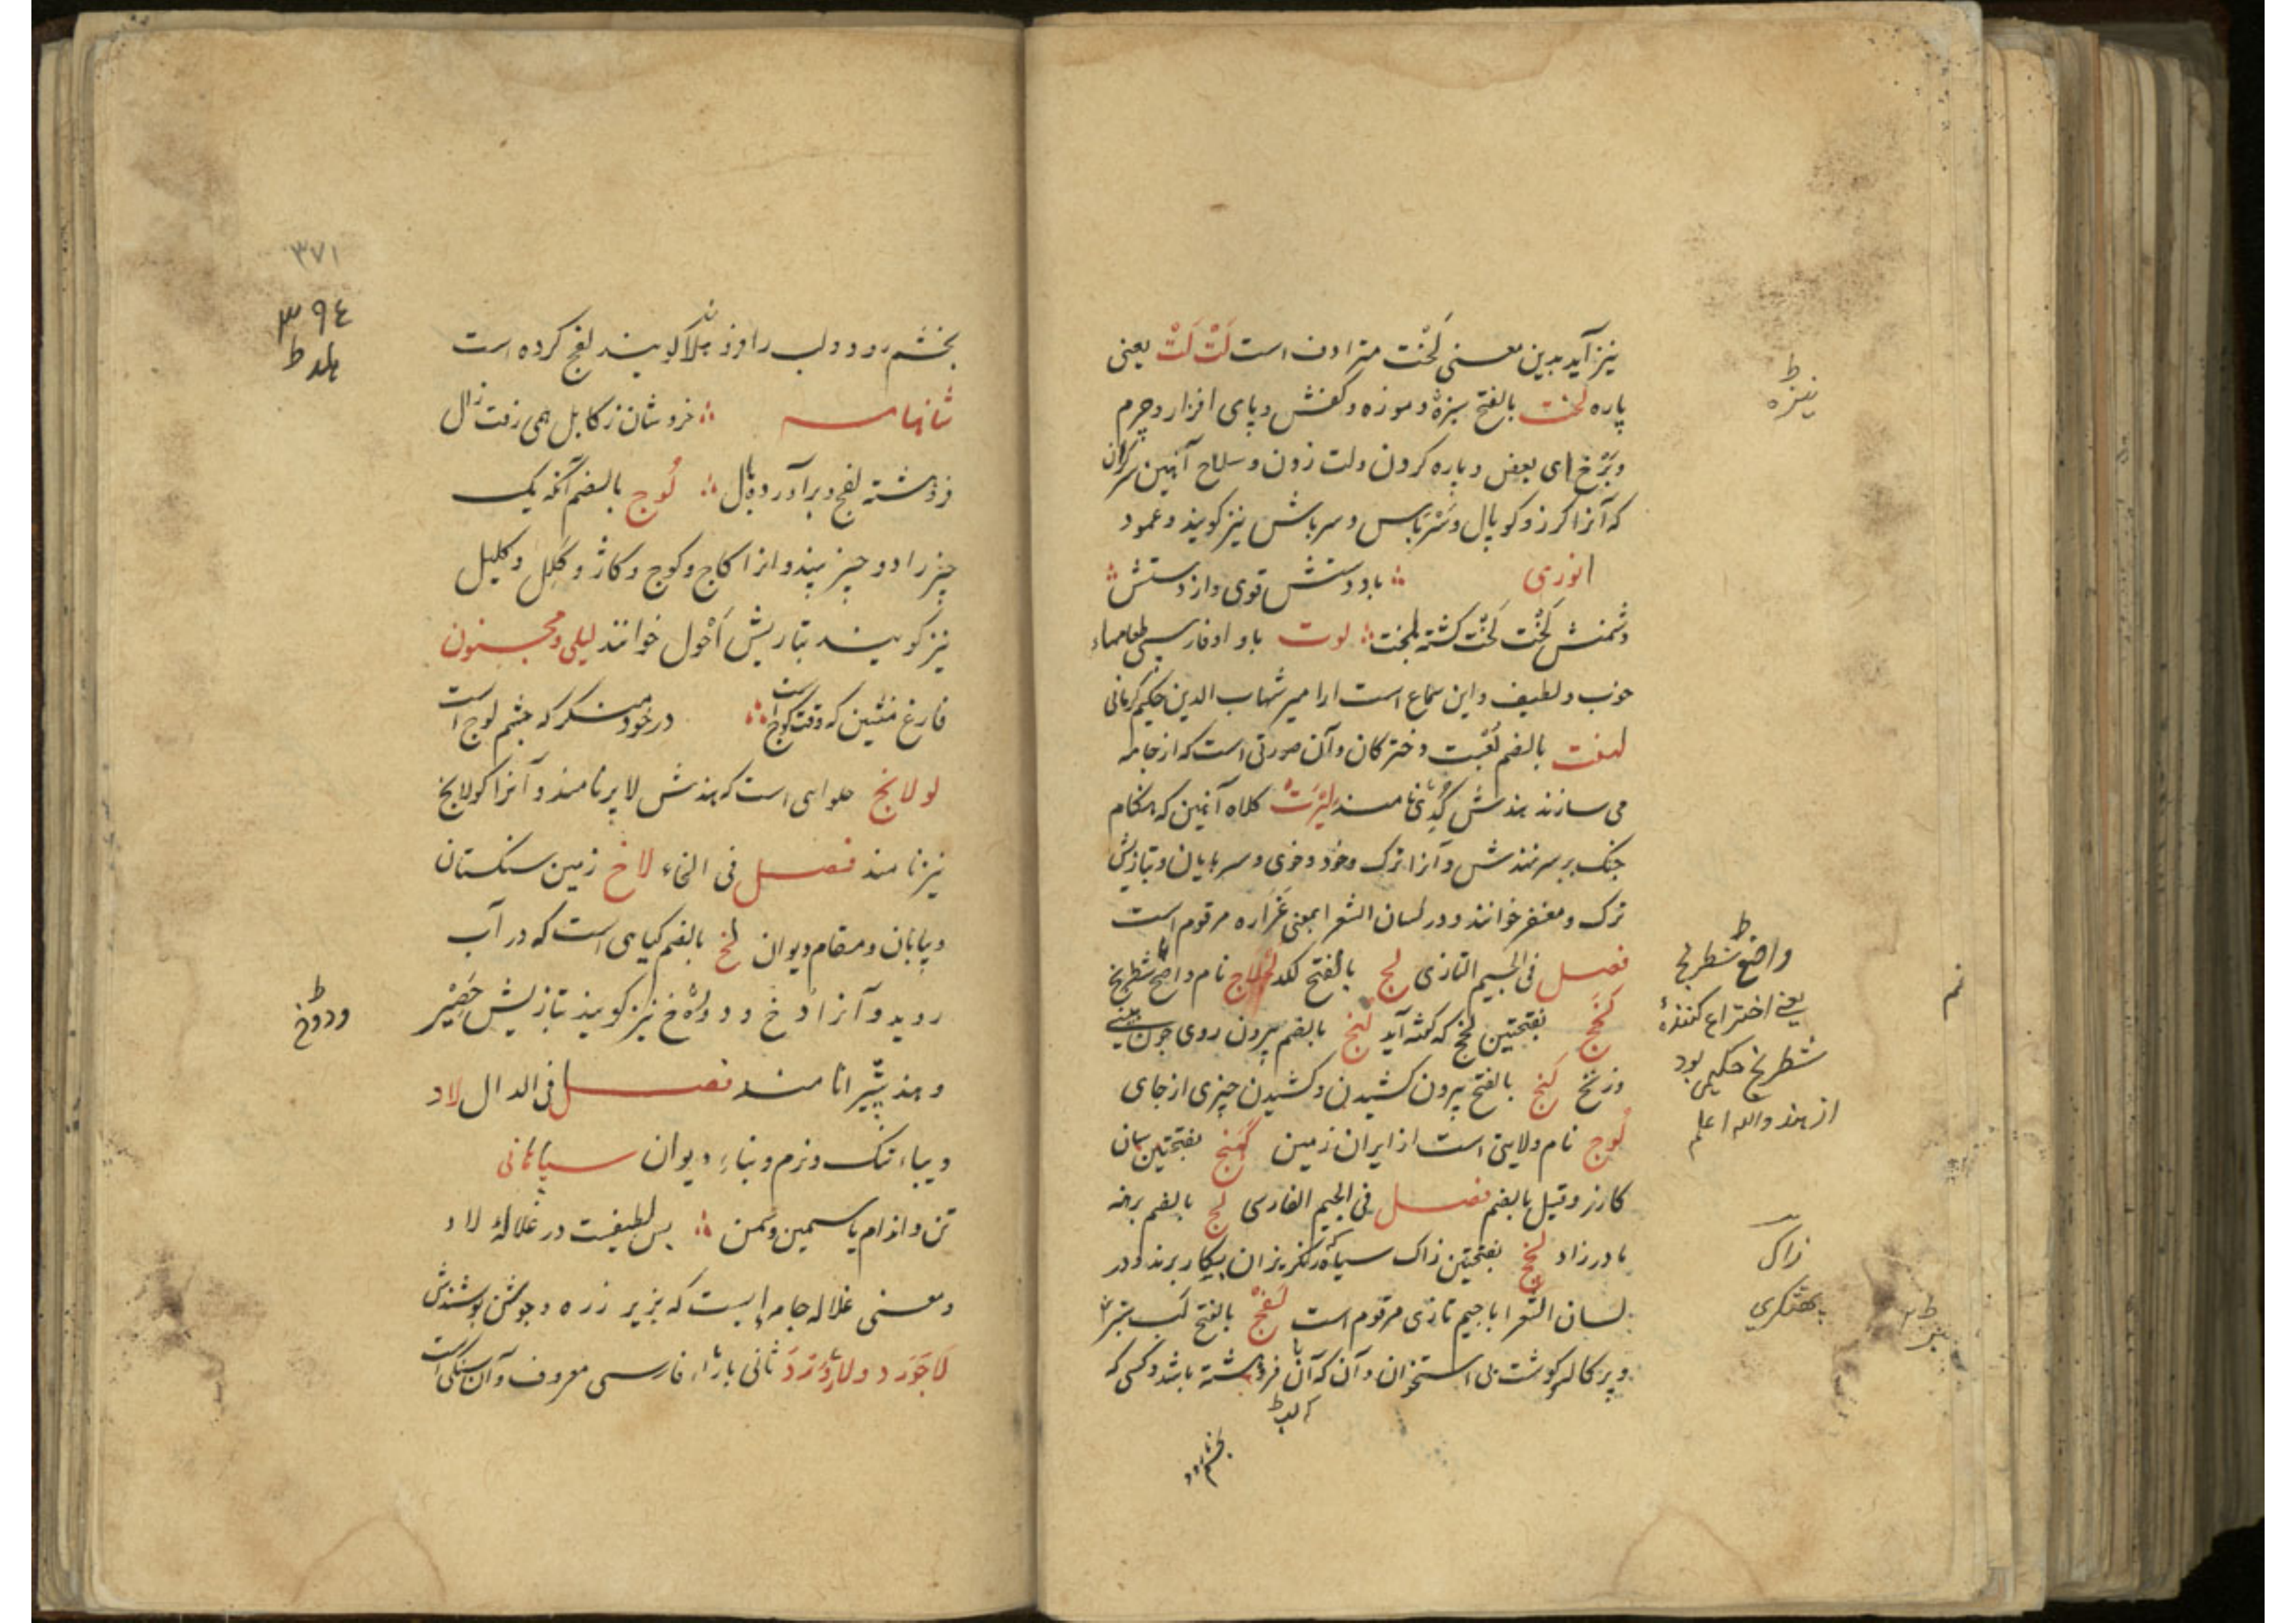 نیز آید بدین معنی لَخْت مترادف است لَتْ لَتْ یعنی
پاره لخت بالفتح سبزهٔ و موزه و کفش و پای افزار و چرم
و بَرْخ ای بعض و پاره کردن ولت زدن و سلاح آهنین سرگران
که آنرا کرز و کوپال و سَرْپاس و سرپاش نیز کویند و عمود
انوری ؞ باد دستش قوی و از دستش ؞
دشمنش لَخْت لَخْت کشته بلخت ؞ لوت با واو فارسی طعامهاء
خوب و لطیف و این سماع است از امیر شهاب الدین حکیم کرمانی
لهفت بالضم لُعْبت دخترکان و آن صورتی است که از جامه
می سازند هندش نامند لِیْرَتْ کلاه آهنین که هنکام
جنک بر سر نهندش و آنرا ترک و خود و خوی و سرپایان و بتازیش
ترک و مغفر خوانند و در لسان الشعرا بمعنی غَرَاره مرقوم است
فصل فی الجیم التازی لج بالفتح لکد لجلاج نام واضع شطرنج
لخج بفتحتین لخج که کشته آید لنج بالضم بیرون روی چون بینی
و زنخ لَنج بالفتح بیرون کشیدن و کشیدن چیزی از جای
لُوج نام ولایتی است از ایران زمین لَهنج بفتحتین سان
کارز و قیل بالضم فصل فی الجیم الفارسی لُچ بالضم برهنه
مادرزاد لخچ بفتحتین زاک سیاه که رنکریزان بپکار برند و در
لسان الشعرا با جیم تازی مرقوم است لَفْچ بالفتح لَب ستبر
و پرکاله کوشت بی استخوان و آن که آن فروهشته باشد و کسی که
بخشم رود
نیزه
واضع شطرنج
یعنی اختراع کنندهٔ
شطرنج حکیمی بود
از هند والله اعلم
زاک
پهتکری
بخشم رود و لب را فرو هلد کویند لفچ کرده است
شاهنامه ؞ خروشان ز کابل همی رفت زال
فروهشته لفچ و برآورده یال ؞ لُوچ بالضم آنکه یک
چیز را دو چیز بیند و انرا کاج و کوج و کاژ و کلل و کلیل
نیز کویند بتازیش اَحْوَل خوانند لیلی و مجنون
فارغ منشین که وقت کوچ است ؞ در خود منکر که چشم لوچ است
لولانج حلوایی است که هندش لاپر نامند و آنرا کولانج
نیز نامند فصل فی الخاء لاخ زمین سنکستان
و بیابان و مقام دیوان لخ بالضم کیاهی است که در آب
روید و آنرا دخ و دوخ نیز کویند بتازیش حَصِیْر
و هند پَتِیْرا نامند فصل فی الدال لاد
دیباء تنک و نرم و بناء دیوان سپاهانی
تن و اندام یاسمین و سمن ؞ بس لطیفست در غلالهٔ لاد
و معنی غلاله جامه ایست که بزیر زره و جوشن پوشندش
لَاجَوَرد و لاژْوَرْدَ ثانی با زاء فارسی معروف و آن سنکی است
۳۷۱
۳۹٤
هلد
و دوخ